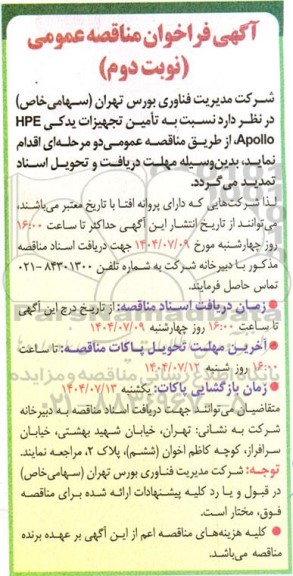 آگهی فراخوان مناقصه عمومی
(نوبت دوم)
شرکت مدیریت فناوری بورس تهران (سهامی‌خاص)
در نظر دارد نسبت به تأمین تجهیزات یدکی HPE
Apollo، از طریق مناقصه عمومی دو مرحله‌ای اقدام
نماید، بدین‌وسیله مهلت دریافت و تحویل اسناد
تمدید می‌گردد.
لذا شرکت‌هایی که دارای پروانه افتا با تاریخ معتبر می‌باشند،
می‌توانند از تاریخ انتشار این آگهی حداکثر تا ساعت ۱۶:۰۰
روز چهارشنبه مورخ ۱۴۰۴/۰۷/۰۹ جهت دریافت اسناد مناقصه
مذکور با دبیرخانه شرکت به شماره تلفن ۸۴۳۰۱۳۰۰-۰۲۱
تماس حاصل فرمایند.
● زمان دریافت اسناد مناقصه: از تاریخ درج این آگهی
تا ساعت ۱۶:۰۰ روز چهارشنبه ۱۴۰۴/۰۷/۰۹
● آخرین مهلت تحویل پاکات مناقصه: تا ساعت
۱۶:۰۰ روز شنبه ۱۴۰۴/۰۷/۱۲
● زمان بازگشایی پاکات: یکشنبه ۱۴۰۴/۰۷/۱۳
متقاضیان می‌توانند جهت دریافت اسناد مناقصه به دبیرخانه
شرکت به نشانی: تهران، خیابان شهید بهشتی، خیابان
سرافراز، کوچه کاظم اخوان (ششم)، پلاک ۲، مراجعه نمایند.
توجه: شرکت مدیریت فناوری بورس تهران (سهامی‌خاص)
در قبول و یا رد کلیه پیشنهادات ارائه شده برای مناقصه
فوق، مختار است.
● کلیه هزینه‌های مناقصه اعم از این آگهی بر عهده برنده
مناقصه می‌باشد.